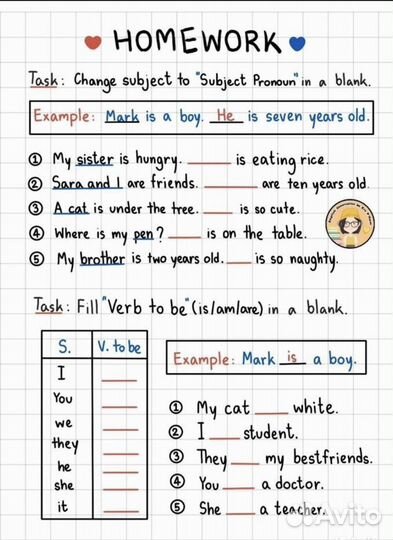 HOMEWORK
Task: Change subject to "Subject Pronoun" in a blank.
Example: Mark is a boy. He is seven years old.
① My sister is hungry. ____ is eating rice.
② Sara and I are friends. ____ are ten years old.
③ A cat is under the tree. ____ is so cute.
④ Where is my pen? ____ is on the table.
⑤ My brother is two years old. ____ is so naughty.
Task: Fill "Verb to be" (is/am/are) in a blank.
S. V. to be
I ____
You ____
we ____
they ____
he ____
she ____
it ____
Example: Mark is a boy.
① My cat ____ white.
② I ____ student.
③ They ____ my bestfriends.
④ You ____ a doctor.
⑤ She ____ a teacher.
Avito